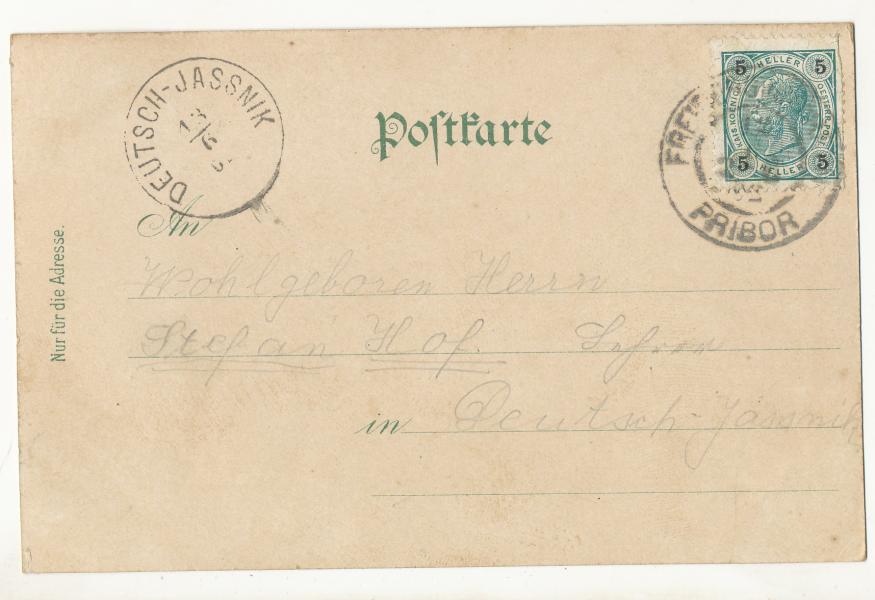 DEUTSCH-JASSNIK
13/6
Postkarte
5 HELLER 5
KAIS. KOENIGL. OESTERR. POST
5 HELLER 5
PRIBOR
An
Wohlgeboren Herrn
Stefan Hof. Lehrer
in Deutsch-Jassnik
Nur für die Adresse.